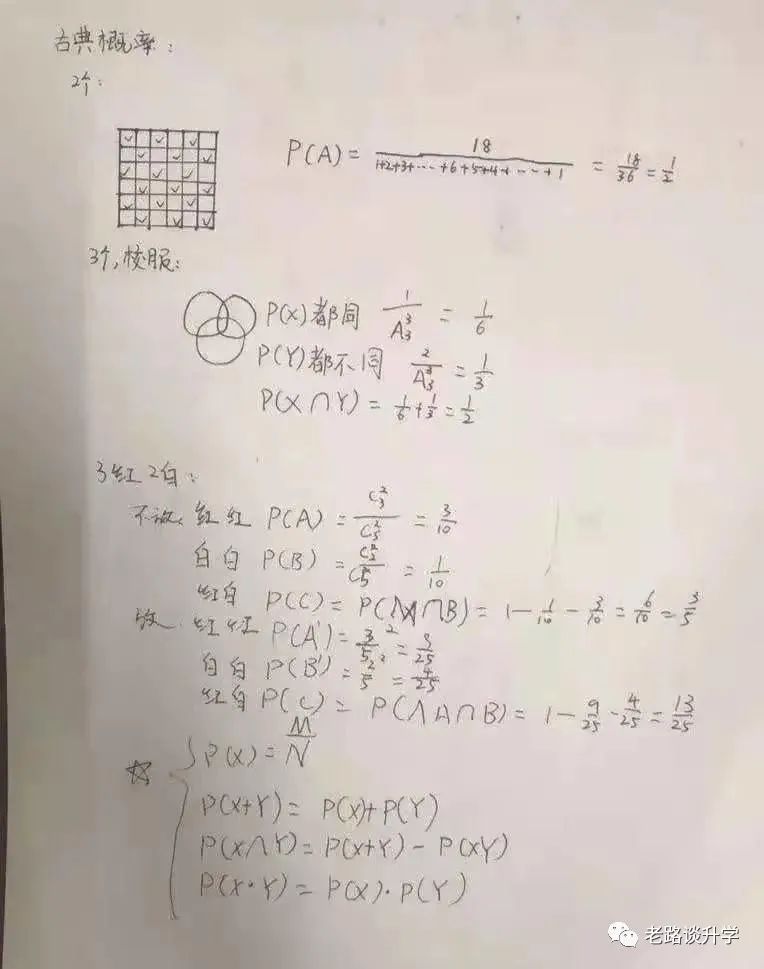 古典概率:
2个:
P(A) = 18 / 1+2+3+…+6+5+4+…+1 = 18/36 = 1/2
3个,校服:
P(X)都同 1/A₃³ = 1/6
P(Y)都不同 2/A₃³ = 1/3
P(X∩Y) = 1/6 + 1/3 = 1/2
3红2白:
不放. 红红 P(A) = C₃²/C₅² = 3/10
白白 P(B) = C₂²/C₅² = 1/10
红白 P(C) = P(∧A∩B) = 1 - 1/10 - 3/10 = 6/10 = 3/5
放. 红红 P(A') = 3/5² = 9/25
白白 P(B') = 2/5² = 4/25
红白 P(C) = P(∧A∩B) = 1 - 9/25 - 4/25 = 13/25
☆ P(X) = M/N
P(X+Y) = P(X)+P(Y)
P(X∩Y) = P(X+Y) - P(XY)
P(X·Y) = P(X)·P(Y)
老路谈升学